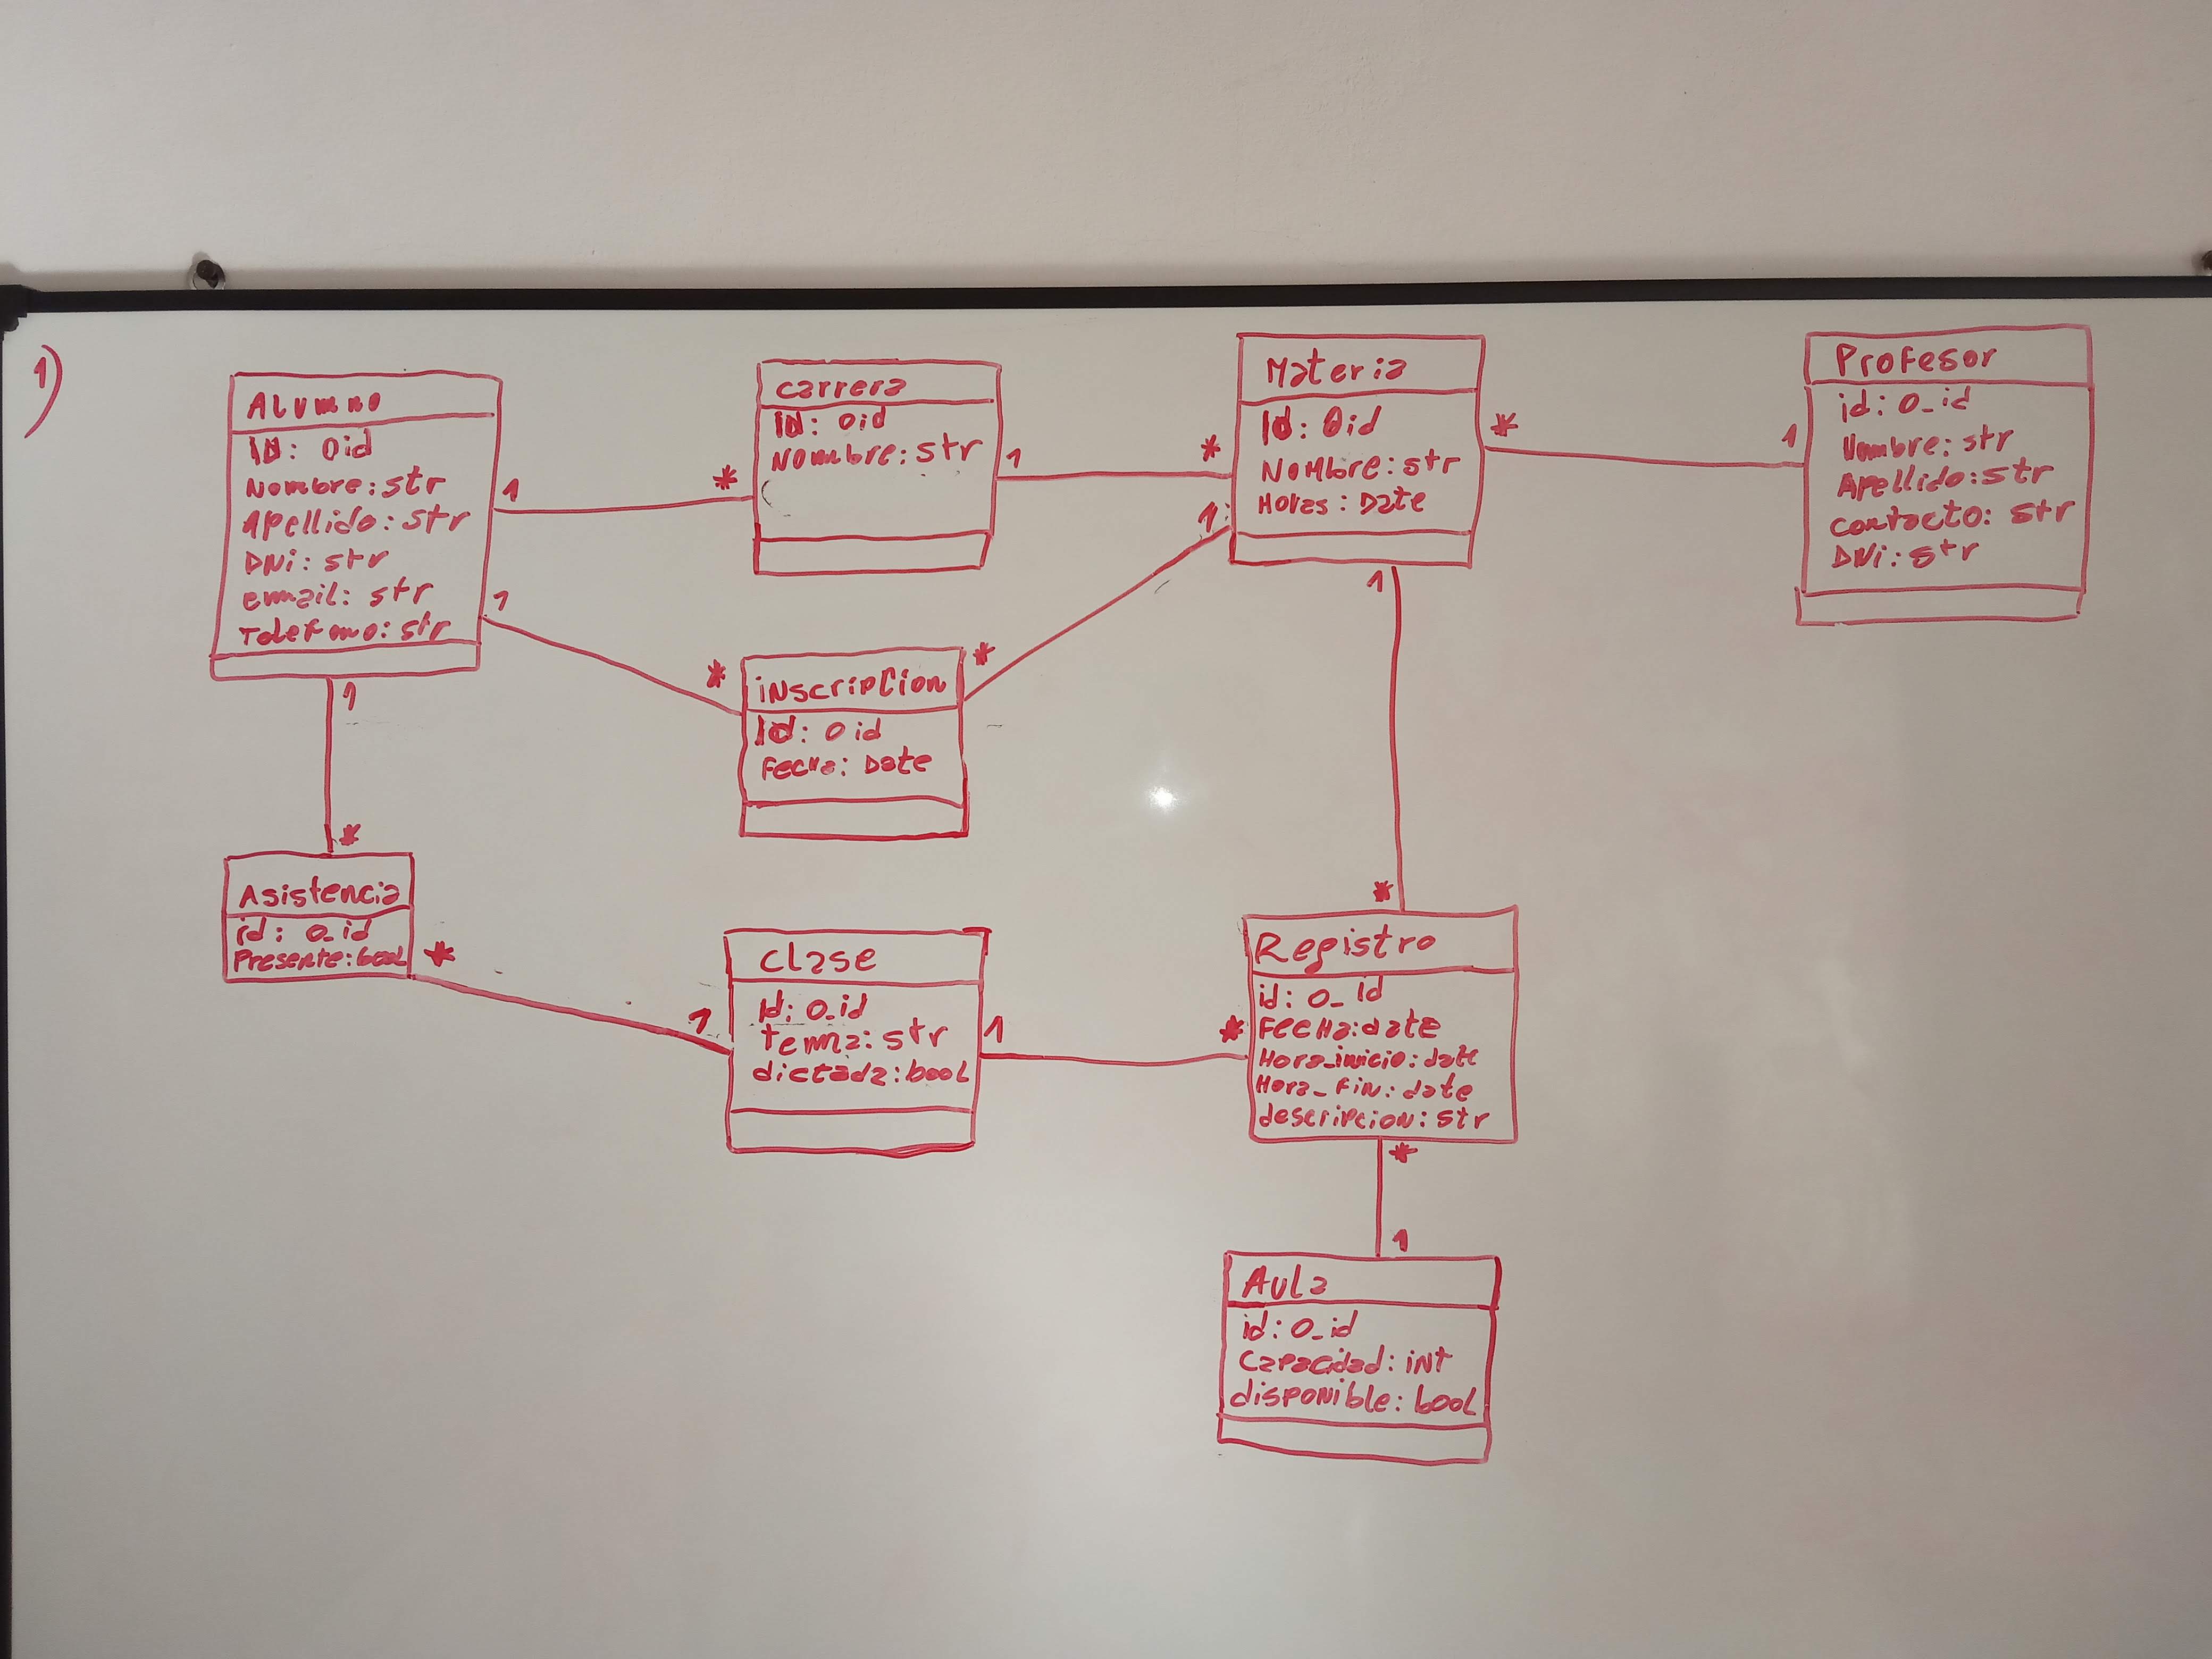 1)
Alumno
Id: Oid
Nombre: str
Apellido: str
DNi: str
email: str
Telefono: str
1
*
1
*
1
*
carrera
Id: Oid
Nombre: str
1
*
Materia
Id: Oid
NoMbre: str
Horas: Date
*
1
Profesor
id: O_id
Nombre: str
Apellido: str
contacto: str
DNi: str
inscripCion
Id: Oid
Fecha: Date
*
1
1
*
Asistencia
id: O_id
Presente: bool
*
1
Clase
Id: O_id
tema: str
dictada: bool
1
*
Registro
id: O_Id
FecHa: date
Hora_inicio: date
Hora_Fin: date
descripcion: str
*
1
Aula
id: O_id
Capacidad: iNt
disponible: bool